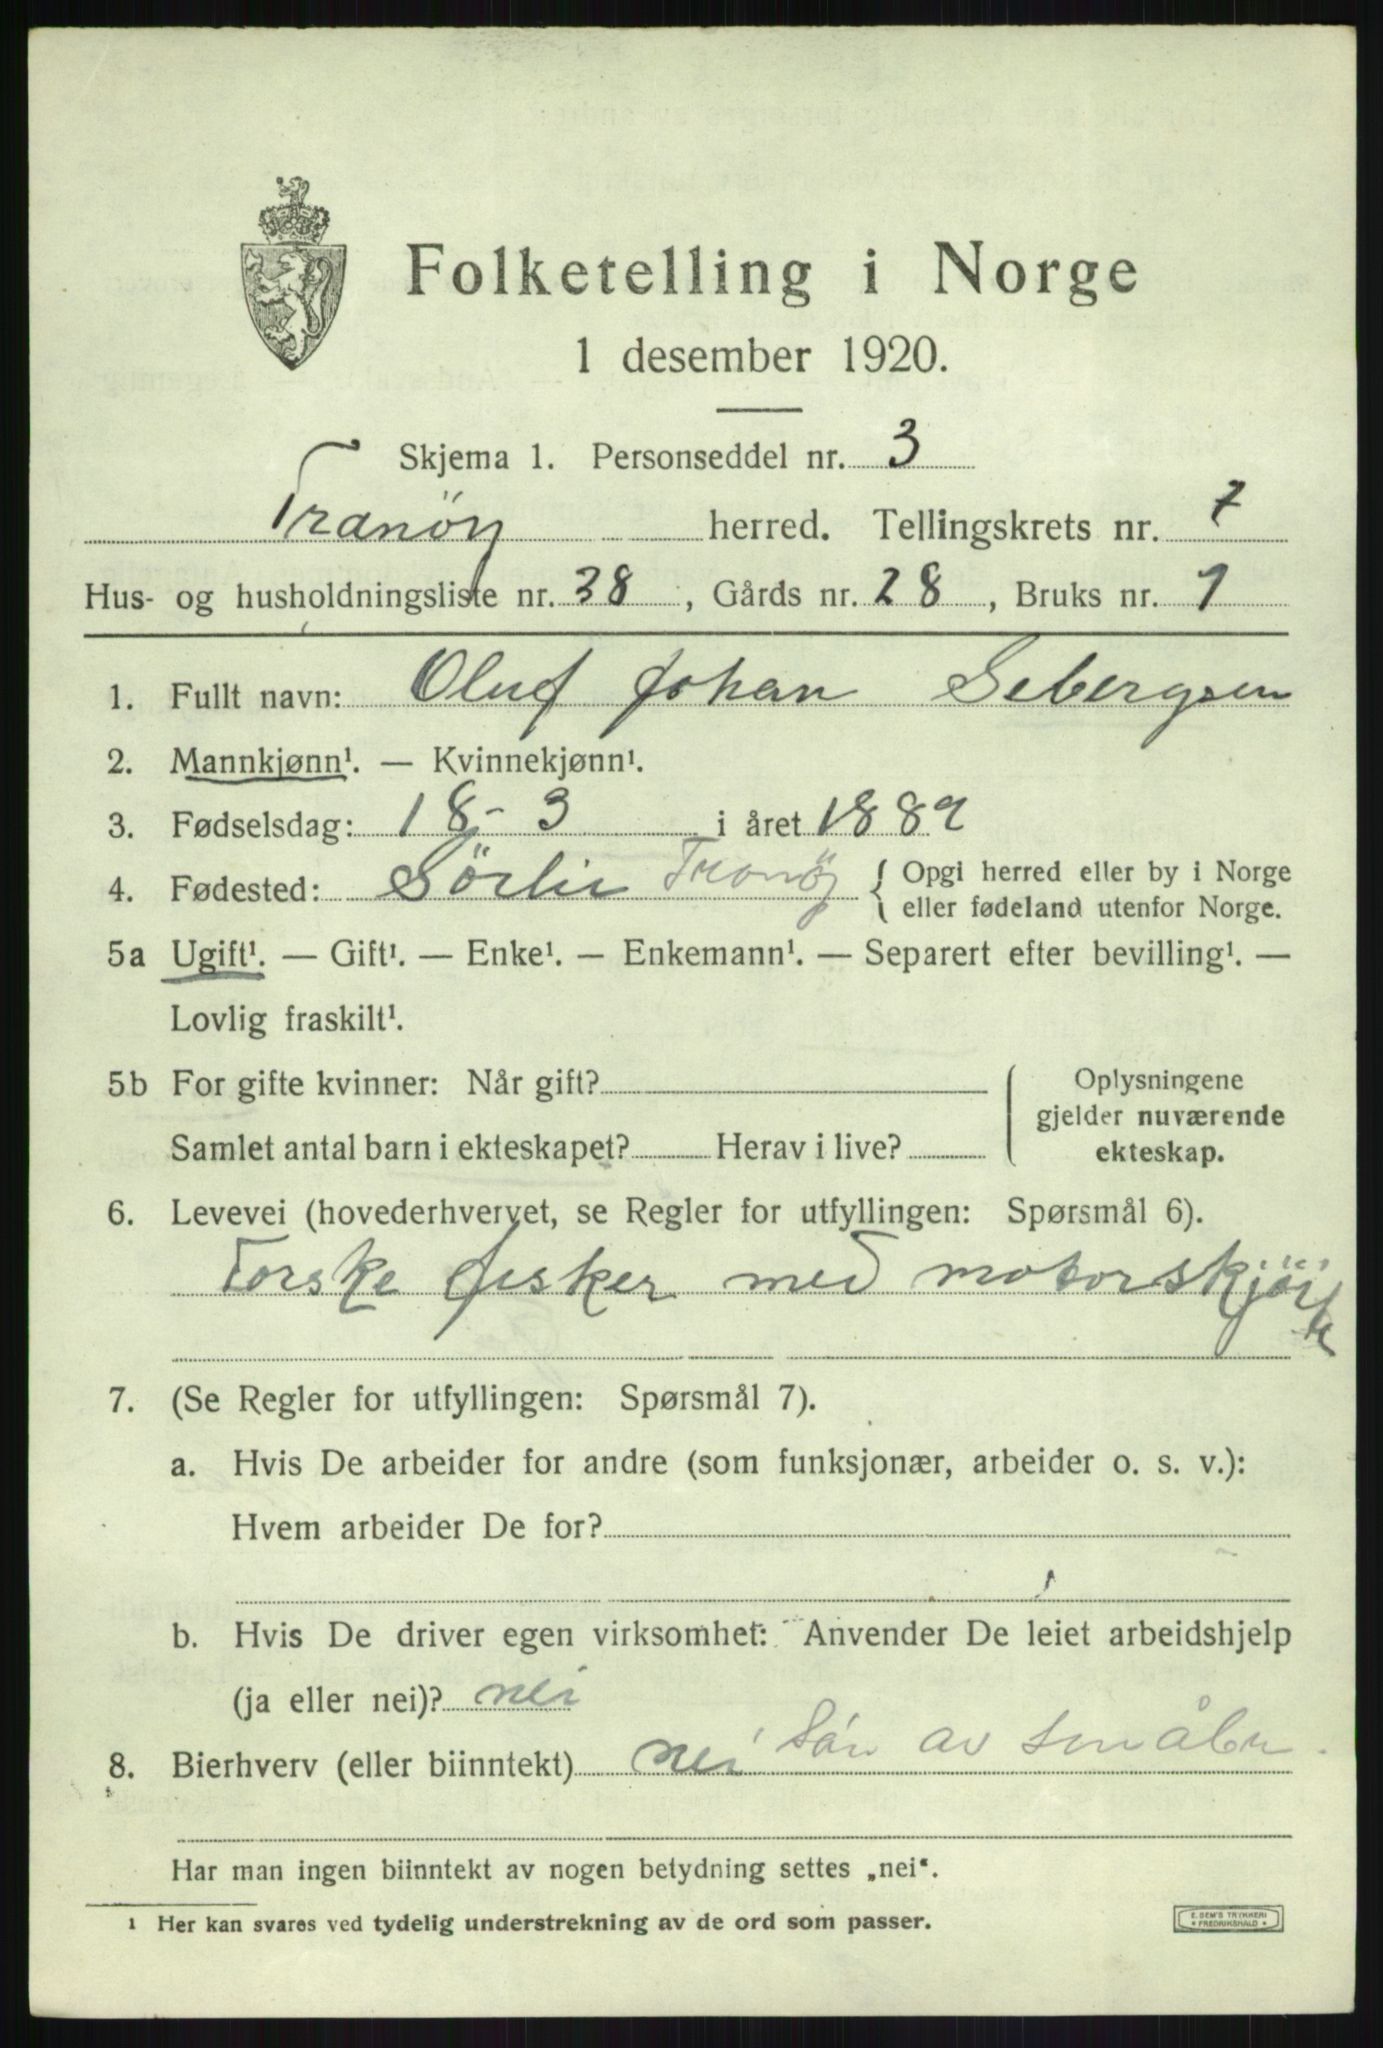 Folketelling i Norge
1 desember 1920.
Skjema 1. Personseddel nr. 3
Tranöy herred. Tellingskrets nr. 7
Hus- og husholdningsliste nr. 38, Gårds nr. 28, Bruks nr. 1
1. Fullt navn: Oluf Johan Sebergsen
2. Mannkjønn¹. — Kvinnekjønn¹.
3. Fødselsdag: 18-3 i året 1889
4. Fødested: Sörlir Tranöy { Opgi herred eller by i Norge
eller fødeland utenfor Norge.
5a Ugift¹. — Gift¹. — Enke¹. — Enkemann¹. — Separert efter bevilling¹. —
Lovlig fraskilt¹.
5b For gifte kvinner: Når gift? Oplysningene
gjelder nuværende
Samlet antal barn i ekteskapet? Herav i live? ekteskap.
6. Levevei (hovederhvervet, se Regler for utfyllingen: Spørsmål 6).
Torske fisker med motorskjöite
7. (Se Regler for utfyllingen: Spørsmål 7).
a. Hvis De arbeider for andre (som funksjonær, arbeider o. s. v.):
Hvem arbeider De for?
b. Hvis De driver egen virksomhet: Anvender De leiet arbeidshjelp
(ja eller nei)? nei
8. Bierhverv (eller biinntekt) nei Sön av småbr.
Har man ingen biinntekt av nogen betydning settes „nei“.
¹ Her kan svares ved tydelig understrekning av de ord som passer.
E. SEM'S TRYKKERI
* FREDRIKSHALD *